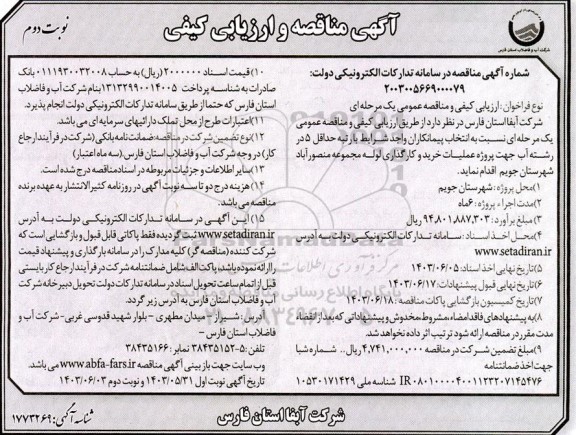 آگهی مناقصه و ارزیابی کیفی
نوبت دوم
شرکت آب و فاضلاب استان فارس
شماره آگهی مناقصه در سامانه تدارکات الکترونیکی دولت:
۲۰۰۳۰۰۵۶۶۹۰۰۰۰۷۹
نوع فراخوان: ارزیابی کیفی و مناقصه عمومی یک مرحله ای
شرکت آبفا استان فارس در نظر دارد از طریق ارزیابی کیفی و مناقصه عمومی
یک مرحله ای نسبت به انتخاب پیمانکاران واجد شرایط با رتبه حداقل ۵ در
رشته آب جهت پروژه عملیات خرید و کارگذاری لوله مجموعه منصورآباد
شهرستان جویم اقدام نماید.
۱) محل پروژه: شهرستان جویم
۲) مدت اجراء پروژه: ۶ماه
۳) مبلغ برآورد: ۹۴،۸۰۱،۸۸۷،۳۰۳ ریال
۴) محل اخذ اسناد: سامانه تدارکات الکترونیکی دولت به آدرس
www.setadiran.ir
۵) تاریخ نهایی اخذ اسناد: ۱۴۰۳/۰۶/۰۵
۶) تاریخ نهایی قبول پیشنهادات: ۱۴۰۳/۰۶/۱۷
۷) تاریخ کمیسیون بازگشایی پاکات مناقصه: ۱۴۰۳/۰۶/۱۸
۸) به پیشنهادهای فاقد امضاء، مشروط مخدوش و پیشنهاداتی که بعد از انقضاء
مدت مقرر در مناقصه ارائه شود ترتیب اثر داده نخواهد شد.
۹) مبلغ تضمین شرکت در مناقصه ۴,۷۴۱,۰۰۰,۰۰۰ ریال.. شماره شبا
جهت اخذ ضمانتنامه
IR ۰۸۰۱۰۰۰۰۴۰۰۱۱۲۳۲۰۷۱۴۵۴۷۶ شناسه ملی ۱۰۵۳۰۱۷۱۴۲۹
۱۰) قیمت اسناد ۲۰۰۰۰۰۰ (ریال) به حساب ۰۱۱۱۹۳۰۰۳۲۰۰۸ بانک
صادرات به شناسه پرداخت ۱۳۱۳۲۹۹۰۰۱۴۰۰۵ بنام شرکت آب و فاضلاب
استان فارس که حتما از طریق سامانه تدارکات الکترونیکی دولت انجام پذیرد.
۱۱) اعتبارات طرح از محل تملک دارائیهای سرمایه ای می باشد.
۱۲) نوع تضمین شرکت در مناقصه: ضمانت نامه بانکی (شرکت در فرآیند ارجاع
کار) در وجه شرکت آب و فاضلاب استان فارس. (سه ماه اعتبار)
۱۳) سایر اطلاعات و جزئیات مربوطه در اسناد مناقصه درج شده است.
۱۴) هزینه درج دو تا سه نوبت آگهی در روزنامه کثیرالانتشار به عهده برنده
مناقصه می باشد.
۱۵) این آگهی در سامانه تدارکات الکترونیکی دولت به آدرس
www.setadiran.ir ثبت گردیده فقط پاکاتی قابل قبول و بازگشایی است که
شرکت کننده (مناقصه گر) کلیه مدارک را در سامانه بارگذاری و پیشنهاد قیمت
را ارائه نموده باشد، پاکت الف شامل ضمانتنامه شرکت در فرآیند ارجاع کار بایستی
قبل از اتمام ساعت تحویل اسناد در سامانه تدارکات دولت تحویل دبیرخانه شرکت
آب و فاضلاب استان فارس به آدرس زیر گردد.
آدرس: شیراز- میدان مطهری - بلوار شهید قدوسی غربی- شرکت آب و
فاضلاب استان فارس -
تلفن: ۵-۳۸۴۳۵۱۵۲ نمابر: ۳۸۴۳۵۱۶۶
وب سایت جهت بازبینی آگهی مناقصه www.abfa-fars.ir می باشد.
تاریخ آگهی نوبت اول ۱۴۰۳/۰۵/۳۱ و نوبت دوم ۱۴۰۳/۰۶/۰۳
شرکت آبفا استان فارس
شناسه آگهی: ۱۷۷۳۲۶۹